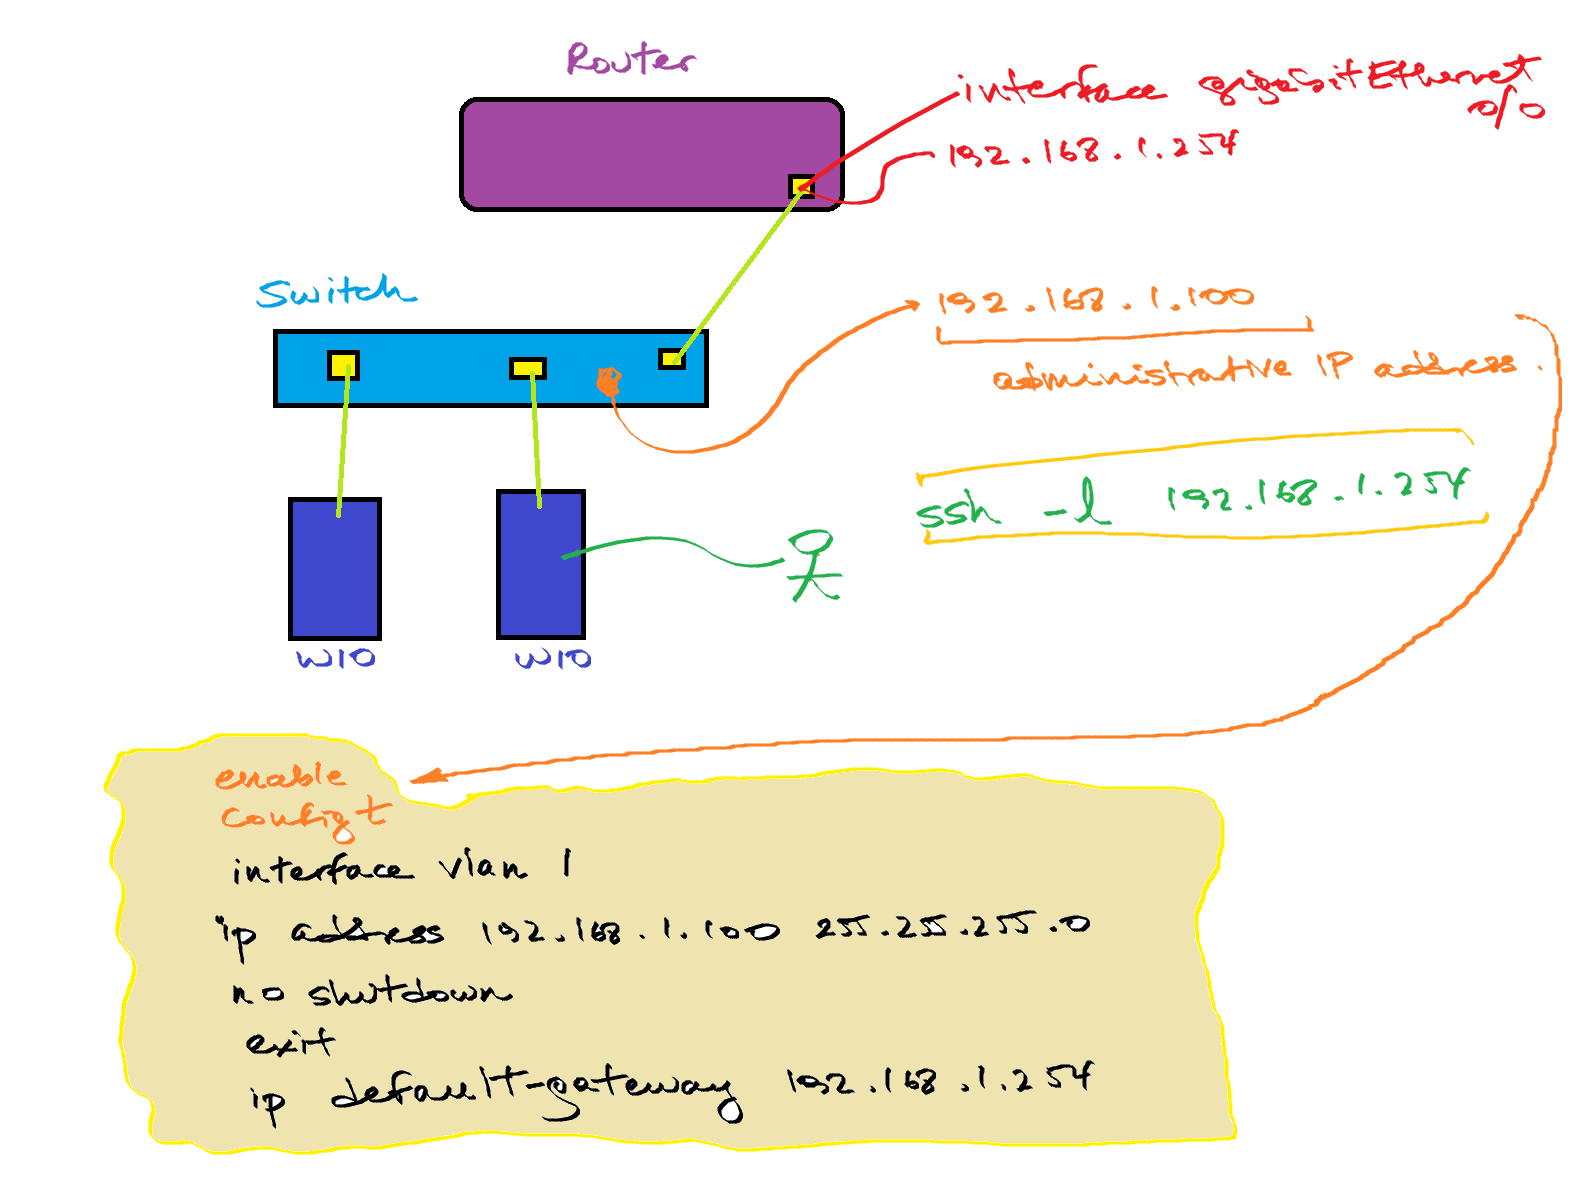 Router
interface gigabitEthernet
0/0
192.168.1.254
Switch
192.168.1.100
administrative IP address.
ssh -l 192.168.1.254
W10
W10
enable
config t
interface vlan 1
ip address 192.168.1.100 255.255.255.0
no shutdown
exit
ip default-gateway 192.168.1.254